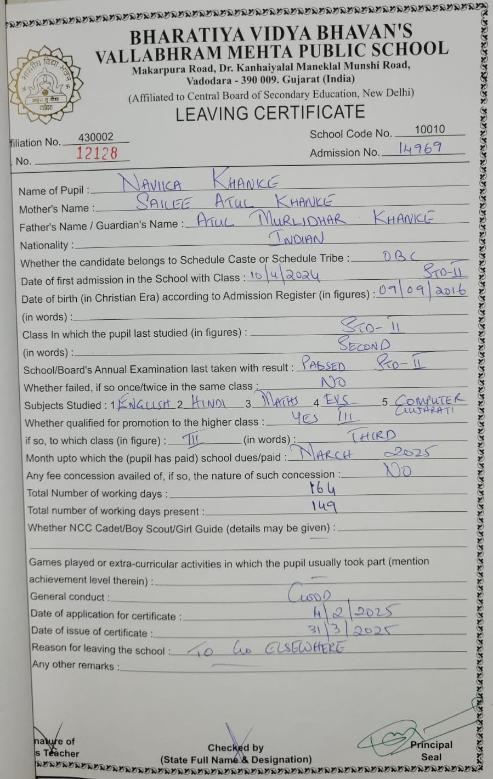 BHARATIYA VIDYA BHAVAN'S
VALLABHRAM MEHTA PUBLIC SCHOOL
Makarpura Road, Dr. Kanhaiyalal Maneklal Munshi Road,
Vadodara - 390 009. Gujarat (India)
(Affiliated to Central Board of Secondary Education, New Delhi)
LEAVING CERTIFICATE
filiation No. 430002 School Code No. 10010
No. 12128 Admission No. 14969
Name of Pupil : NAVIKA KHANKE
Mother's Name : SAILEE ATUL KHANKE
Father's Name / Guardian's Name : ATUL MURLIDHAR KHANKE
Nationality : INDIAN
Whether the candidate belongs to Schedule Caste or Schedule Tribe : OBC
Date of first admission in the School with Class : 10/4/2024 STD-II
Date of birth (in Christian Era) according to Admission Register (in figures) : 09/09/2016
(in words) :
Class In which the pupil last studied (in figures) : STD-II
(in words) : SECOND
School/Board's Annual Examination last taken with result : PASSED STD-II
Whether failed, if so once/twice in the same class : NO
Subjects Studied : 1 ENGLISH 2 HINDI 3 MATHS 4 EVS 5 COMPUTER
GUJARATI
Whether qualified for promotion to the higher class : YES III
if so, to which class (in figure) : III (in words) : THIRD
Month upto which the (pupil has paid) school dues/paid : MARCH 2025
Any fee concession availed of, if so, the nature of such concession : NO
Total Number of working days : 164
Total number of working days present : 149
Whether NCC Cadet/Boy Scout/Girl Guide (details may be given) :
Games played or extra-curricular activities in which the pupil usually took part (mention
achievement level therein) :
General conduct : GOOD
Date of application for certificate : 4/2/2025
Date of issue of certificate : 31/3/2025
Reason for leaving the school : TO GO ELSEWHERE
Any other remarks :
nature of Checked by Principal
s Teacher (State Full Name & Designation) Seal